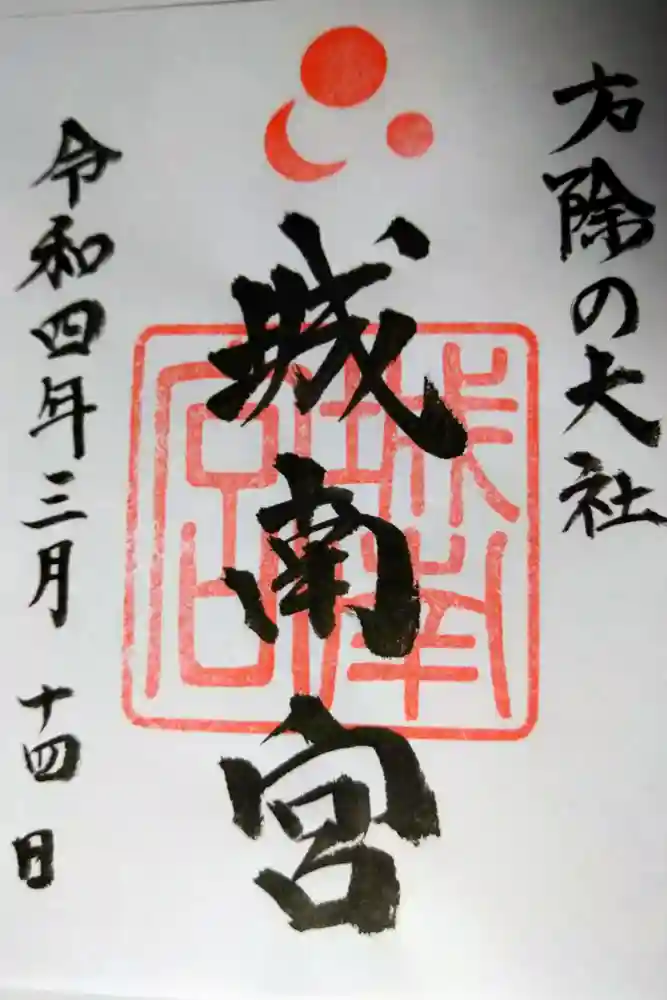 方除の大社
城南宮
城南宮
令和四年三月十四日